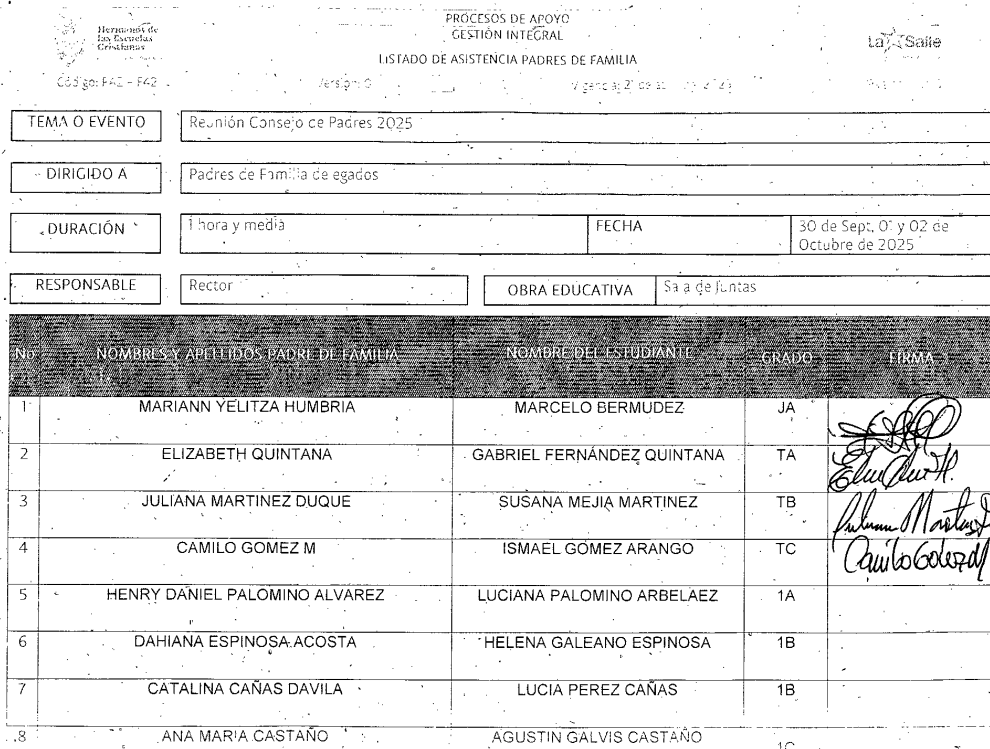 Hermanos de
las Escuelas
Cristianas
PROCESOS DE APOYO
GESTIÓN INTEGRAL
LISTADO DE ASISTENCIA PADRES DE FAMILIA
La Salle
TEMA O EVENTO Reunión Consejo de Padres 2025
DIRIGIDO A Padres de Familia de egados
DURACIÓN 1 hora y media FECHA 30 de Sept, 01 y 02 de
Octubre de 2025
RESPONSABLE Rector OBRA EDUCATIVA Sala de Juntas
No NOMBRES Y APELLIDOS PADRE DE FAMILIA NOMBRE DEL ESTUDIANTE GRADO FIRMA
1 MARIANN YELITZA HUMBRIA MARCELO BERMUDEZ JA
2 ELIZABETH QUINTANA GABRIEL FERNÁNDEZ QUINTANA TA
3 JULIANA MARTINEZ DUQUE SUSANA MEJIA MARTINEZ TB
4 CAMILO GOMEZ M ISMAEL GÓMEZ ARANGO TC Camilo Gomez M
5 HENRY DANIEL PALOMINO ALVAREZ LUCIANA PALOMINO ARBELAEZ 1A
6 DAHIANA ESPINOSA ACOSTA HELENA GALEANO ESPINOSA 1B
7 CATALINA CAÑAS DAVILA LUCIA PEREZ CAÑAS 1B
8 ANA MARIA CASTAÑO AGUSTIN GALVIS CASTAÑO 1C